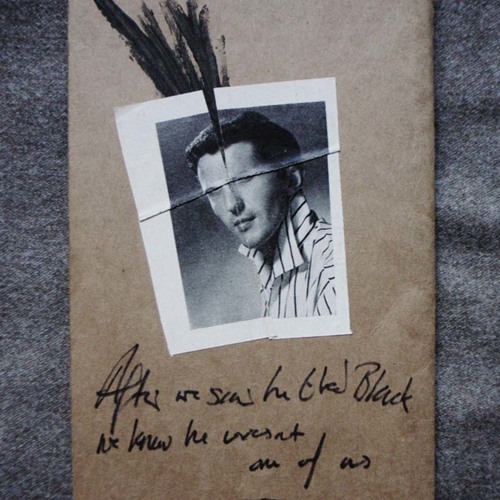 After we saw he bled Black
we knew he wasnt
one of us